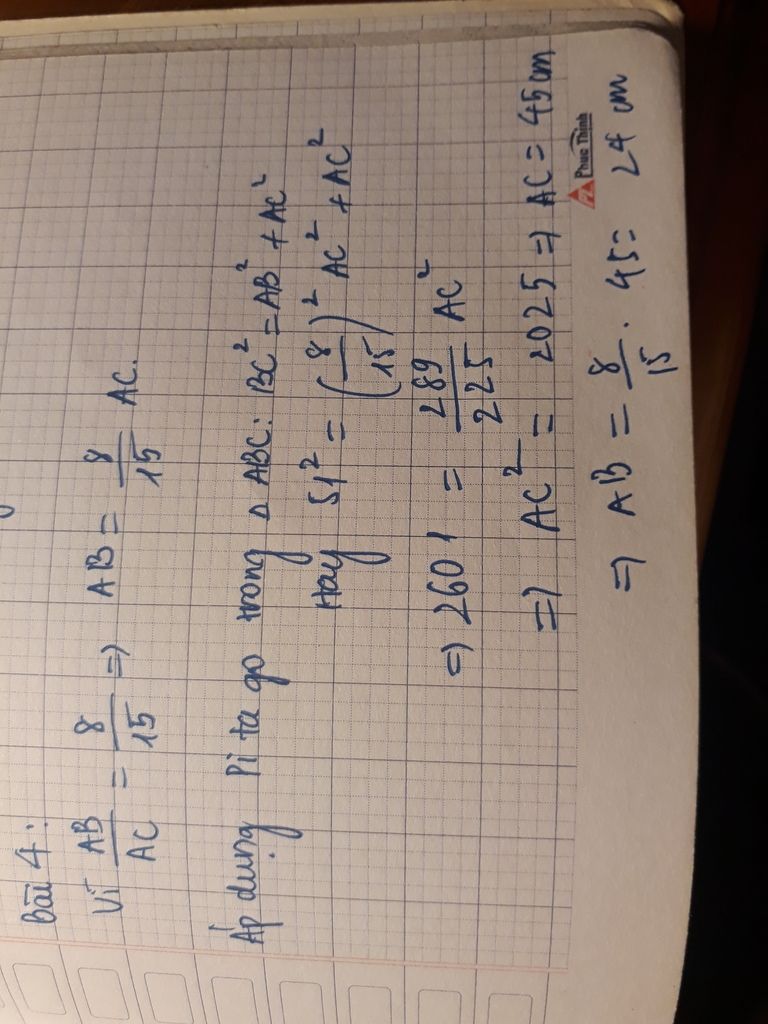 Bài 4:
Vì AB/AC = 8/15 => AB = 8/15 AC.
Áp dụng Pi ta go trong Δ ABC: BC² = AB² + AC²
Hay 51² = (8/15)² AC² + AC²
=> 2601 = 289/225 AC²
=> AC² = 2025 => AC = 45 cm
Phuc Thinh
=> AB = 8/15 . 45 = 24 cm